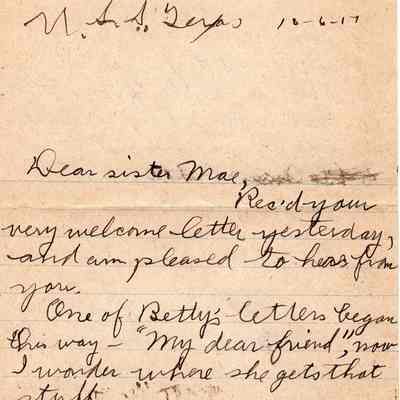 U.S.S. Texas 10-6-17
Dear sister Mae,
Rec'd your
very welcome letter yesterday,
and am pleased to hear from
you.
One of Betty's letters began
this way – "My dear friend", now
I wonder where she gets that
stuff